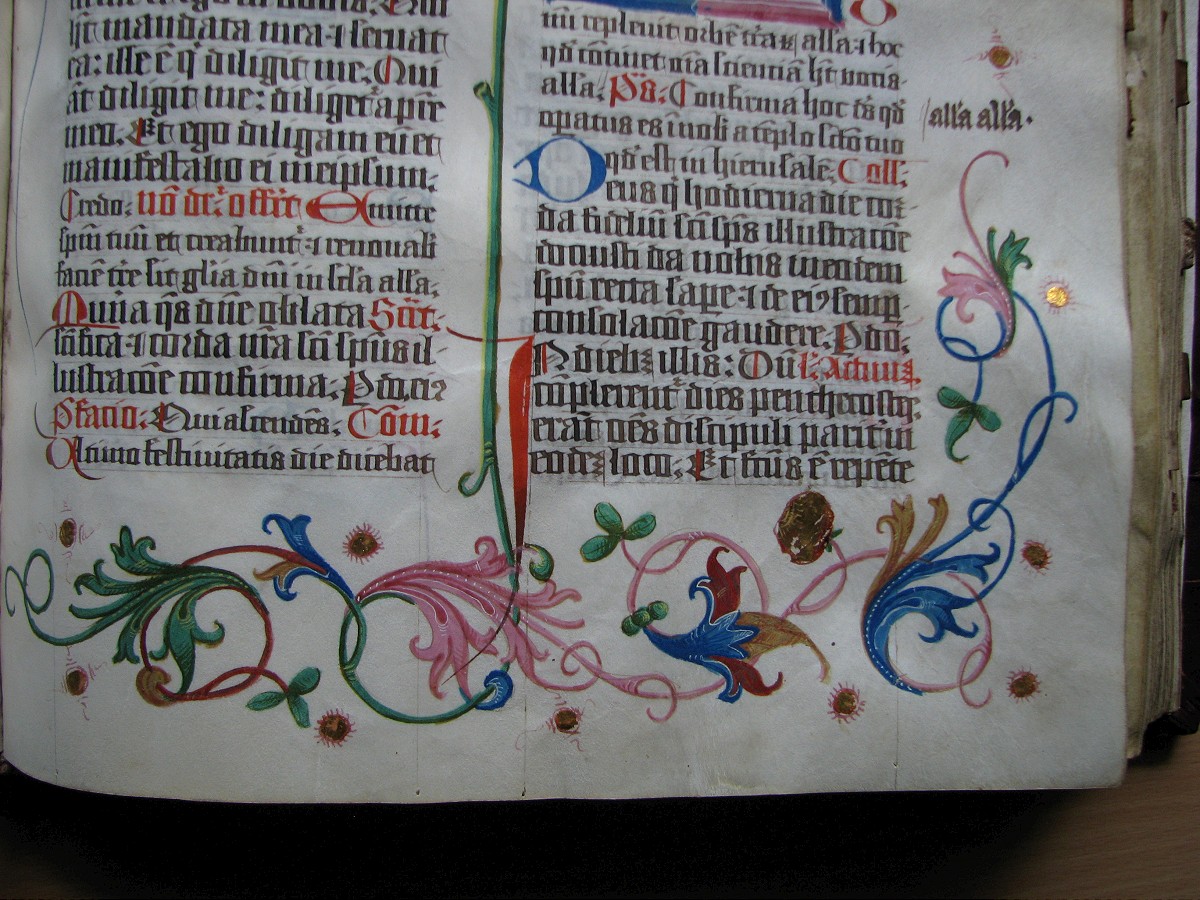 h̄t mandata mea ⁊ seruat
ea: ille ē q̄ diligit me. Qui
āt diligit me: diliget̄ a pr̄e
meo. Et ego diligam eū et
manifestabo ei meipsum.
Credo. Emitte
spm̄ tuū et creabunt̄ ⁊ renouab̄
faciē tr̄e sit gl̄ia dn̄i in scl̄a all̄a.
Mun̄a qs̄ dn̄e oblata Sc̄ct.
sc̄ifica ⁊ corda nr̄a sc̄i spūs il-
lustracōe confirma. P do. eiꝰ
Pfacio. Qui ascendēs. Com̄.
Ultimo festiuitatis die dicebat
m̄i repleuit orbē tr̄aꝝ all̄a. ⁊ hoc
qd̄ cōtinet oīa scienciā h̄t uocis
all̄a. Ps̄. Confirma hoc ds̄ qd̄
opatus es ī nob̄ a tēplo sc̄to tuo
qd̄ est in hierusalē. Coll̄.
Deus q̄ hodierna die cor-
da fideliū sc̄i sps̄ illustracōe
docuisti da nobis in eodem
spū recta sape. ⁊ de eiꝰ semp
consolacōe gaudere. P do.
In diebꝫ illis: Dū l̄. Actuū.
cōplerent̄ dies penthecostꝭ.
erāt oēs discipuli parit̄ in
eodē loco. Et fc̄us ē repēte
all̄a all̄a.